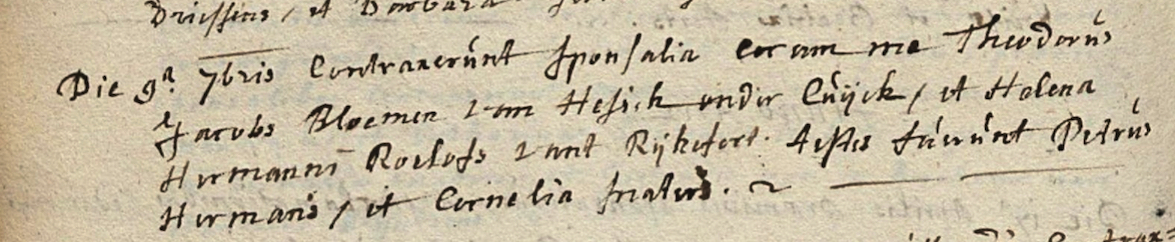 Driessens, et Barbara
Die 9ª 7bris Contraxerunt sponsalia coram me Theodorus
Jacobs Bloemen van Hesick onder Cuijck, et Helena
Hermanni Roelofs vant Rijkefort. testes fuerunt Petrus
Hermans, et Cornelia fraters.